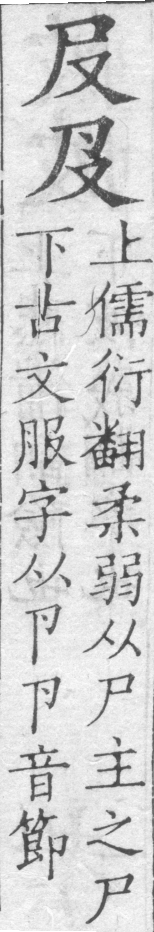 㞋𠬝
上儒衍翻柔弱从尸主之尸
下古文服字从卪卪音節